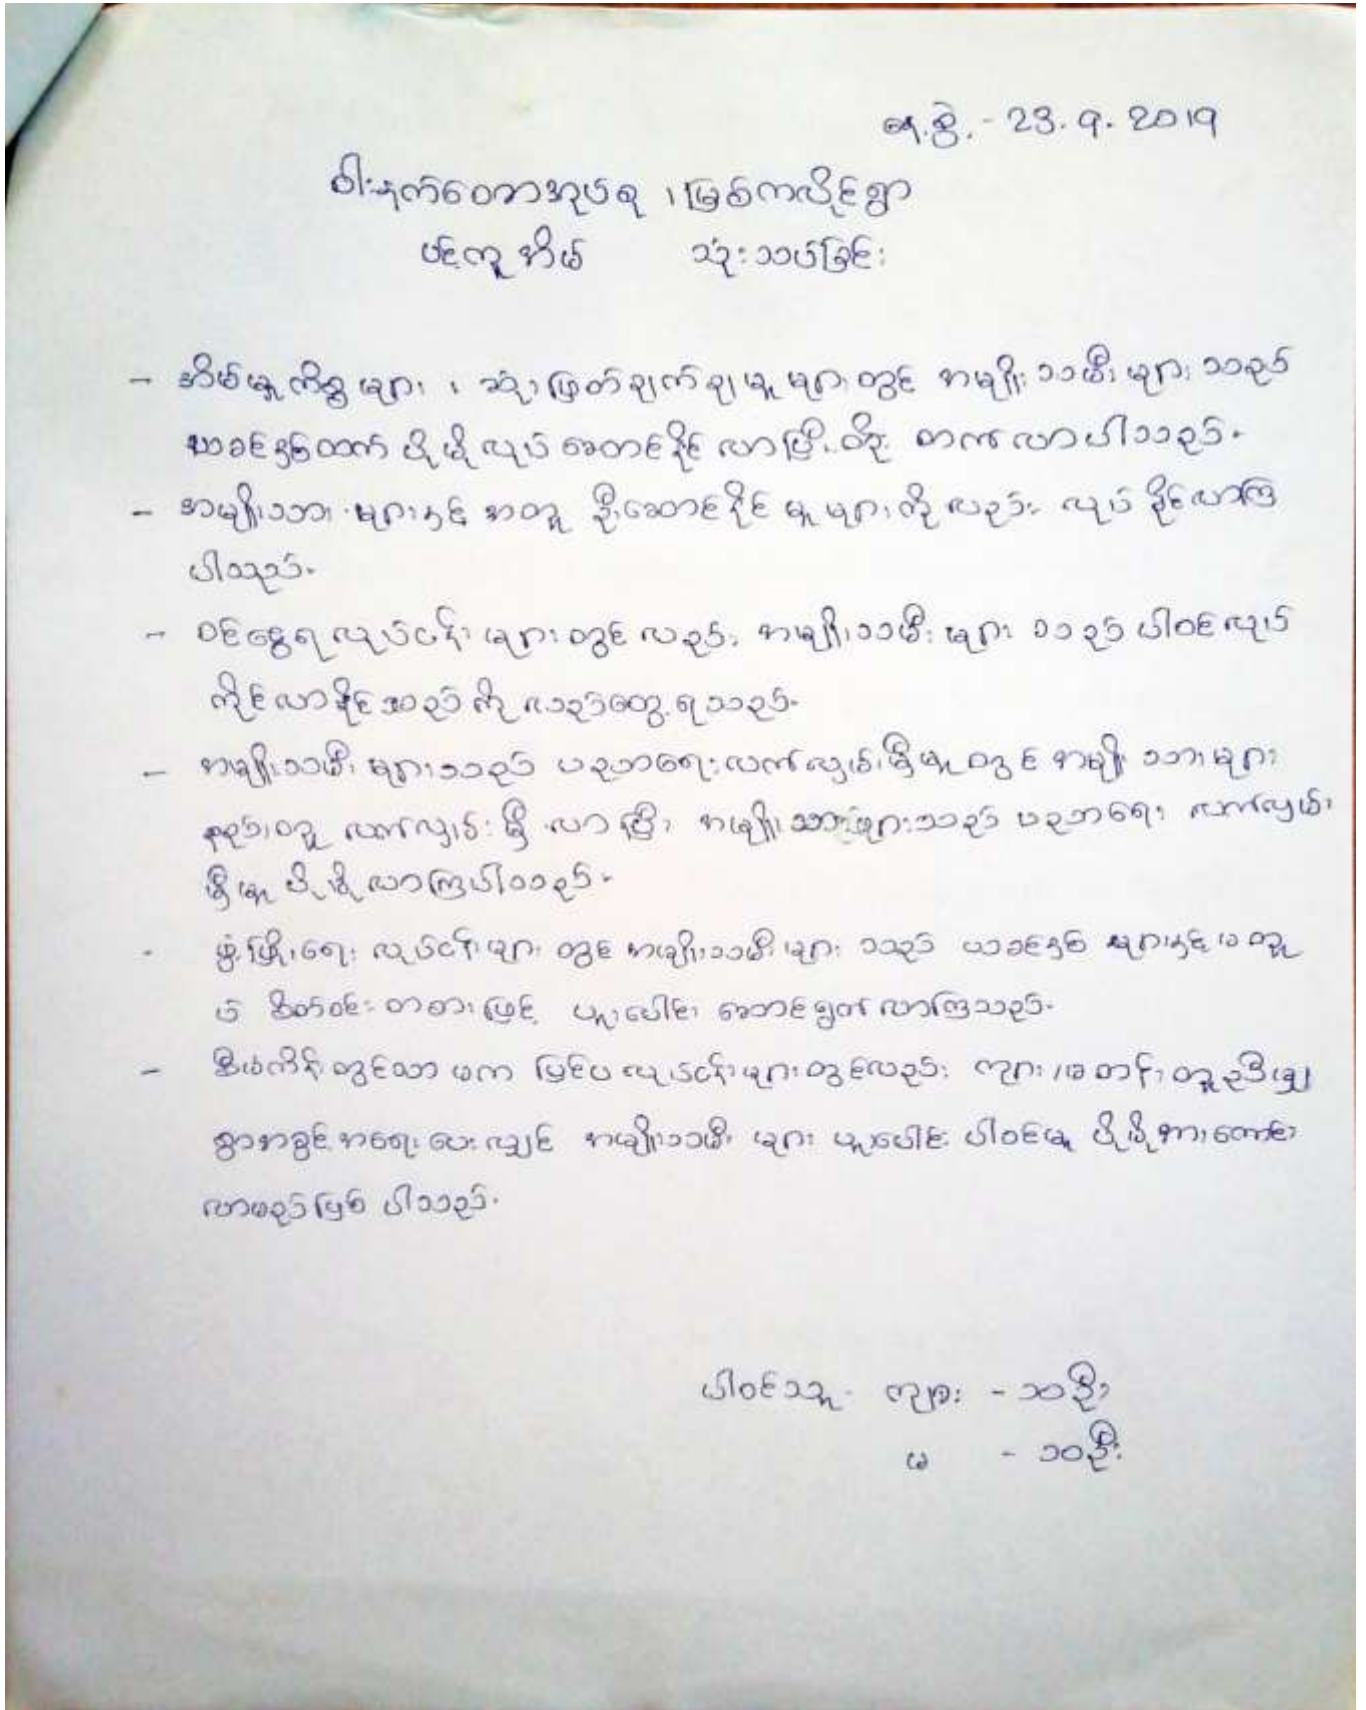 နေ့စွဲ. - 23.9.2019
ဝါးနက်ဝေတာအုပ်စု ၊ မြစ်ကလိုင်ရွာ
ပင့်ကူအိမ် သုံးသပ်ခြင်း
- အိမ်မှုကိစ္စများ ၊ ဆုံးဖြတ်ချက်ချမှုများတွင် အမျိုးသမီးများသည်
ယာခင်နှစ်ထက် ပိုမိုလုပ်ဆောင်နိုင်လာပြီး တိုးတက်လာပါသည်။
- အမျိုးသားများနှင့် အတူ ဦးဆောင်နိုင်မှုများကိုလည်း လုပ်နိုင်လာကြ
ပါသည်။
- ဝင်ငွေရလုပ်ငန်းများတွင်လည်း အမျိုးသမီးများသည် ပါဝင်လုပ်
ကိုင်လာနိုင်သည်ကို တွေ့ရသည်။
- အမျိုးသမီးများသည် ပညာရေးလက်လှမ်းမှီမှုတွင် အမျိုးသားများ
နည်းတူ လက်လှမ်းမှီလာပြီး အမျိုးသားများသည် ပညာရေး လက်လှမ်း
မှီမှု ပိုမိုလာကြပါသည်။
- ဖွံ့ဖြိုးရေးလုပ်ငန်းများတွင် အမျိုးသမီးများသည် ယာခင်နှစ်များနှင့်မတူ
ပဲ စိတ်ဝင်တစားဖြင့် ပူးပေါင်းဆောင်ရွက်လာကြသည်။
- စီမံကိန်းတွင်သာမက ပြင်ပလုပ်ငန်းများတွင်လည်း ကျား/မတန်းတူညီမျှ
စွာအခွင့်အရေးပေးလျှင် အမျိုးသမီးများ ပူးပေါင်းပါဝင်မှု ပိုမိုအားကောင်း
လာမည်ဖြစ်ပါသည်။
ပါဝင်သူ ကျား - ၁၀ဦး
မ - ၁၀ဦး